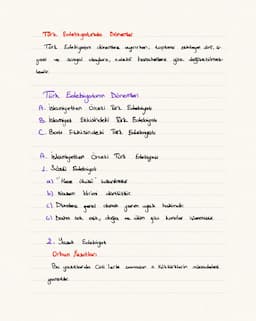 Türk Edebiyatında Dönemler
Türk Edebiyatının dönemlere ayrılırken; toplumu etkileyen dinî, si-
yasi ve sosyal olaylara, edebî hareketlere göre değerlendirilmek-
tedir.
Türk Edebiyatının Dönemleri
A. İslamiyetten Önceki Türk Edebiyatı
B. İslamiyet Etkisindeki Türk Edebiyatı
C. Batı Etkisindeki Türk Edebiyatı
A. İslamiyetten Önceki Türk Edebiyatı
1. Sözlü Edebiyat
a) "Hece ölçüsü" kullanılmıştır.
b) Nazım birimi dörtlüktür.
c) Dizelere genel olarak yarım uyak hakimdir.
d) Daha çok aşk, doğa ve ölüm gibi konular işlenmiştir.
2. Yazılı Edebiyat
Orhun Yazıtları
Bu yazıtlarda Çinlilerle